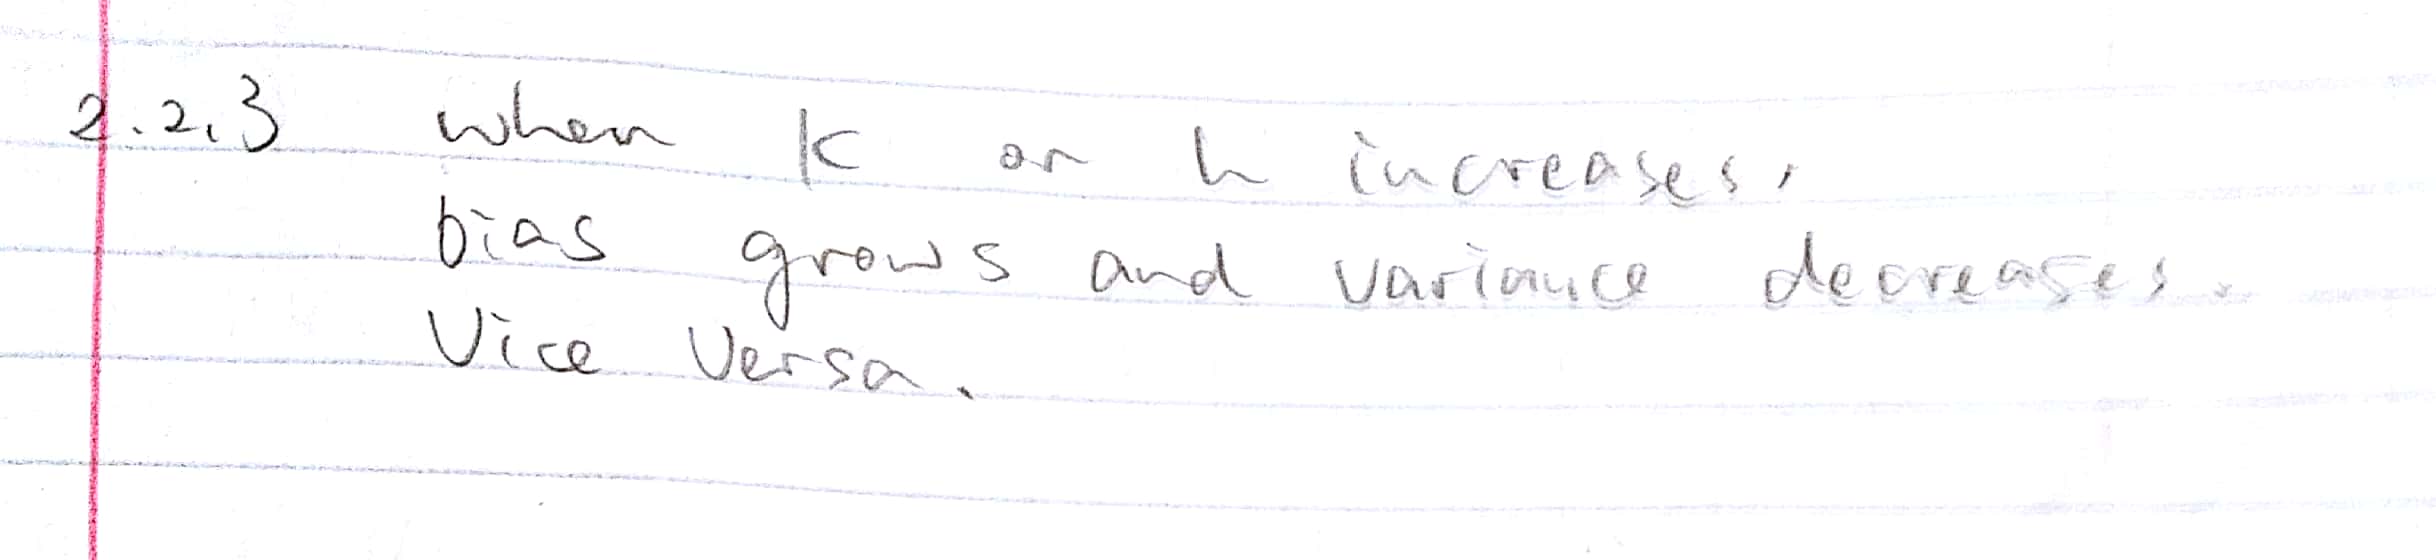 2.2.3 when k or h increases,
bias grows and variance decreases.
Vice Versa.